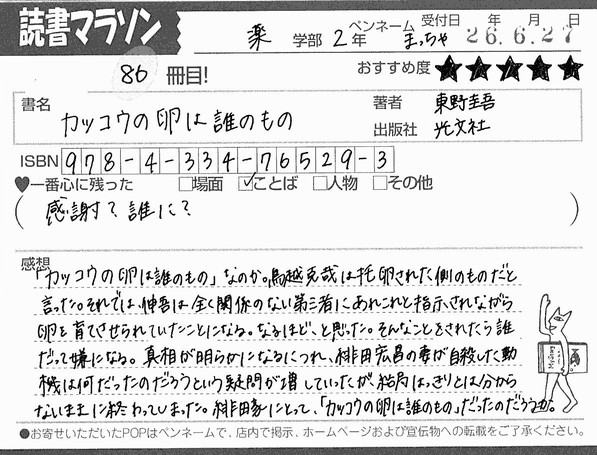 読書マラソン
薬 学部 2年 ペンネーム まっちゃ 受付日 26年6月27日
86 冊目!
おすすめ度 ★★★★★
書名 カッコウの卵は誰のもの
著者 東野圭吾
出版社 光文社
ISBN 978-4-334-76529-3
♥一番心に残った □場面 ☑ことば □人物 □その他
(感謝?誰に?)
感想
「カッコウの卵は誰のもの」なのか。鳥越克哉は托卵された側のものだと
言った。それでは、伸吾は全く関係のない第三者にあれこれと指示されながら
卵を育てさせられていたことになる。なるほど、と思った。そんなことをされたら誰
だって嫌になる。真相が明らかになるにつれ、緋田宏昌の妻が自殺した動
機は何だったのだろうという疑問が増していったが、結局はっきりとは分から
ないままに終わってしまった。緋田家にとって、「カッコウの卵は誰のもの」だったのだろうか。
●お寄せいただいたPOPはペンネームで、店内で掲示、ホームページおよび宣伝物への転載をご了承ください。